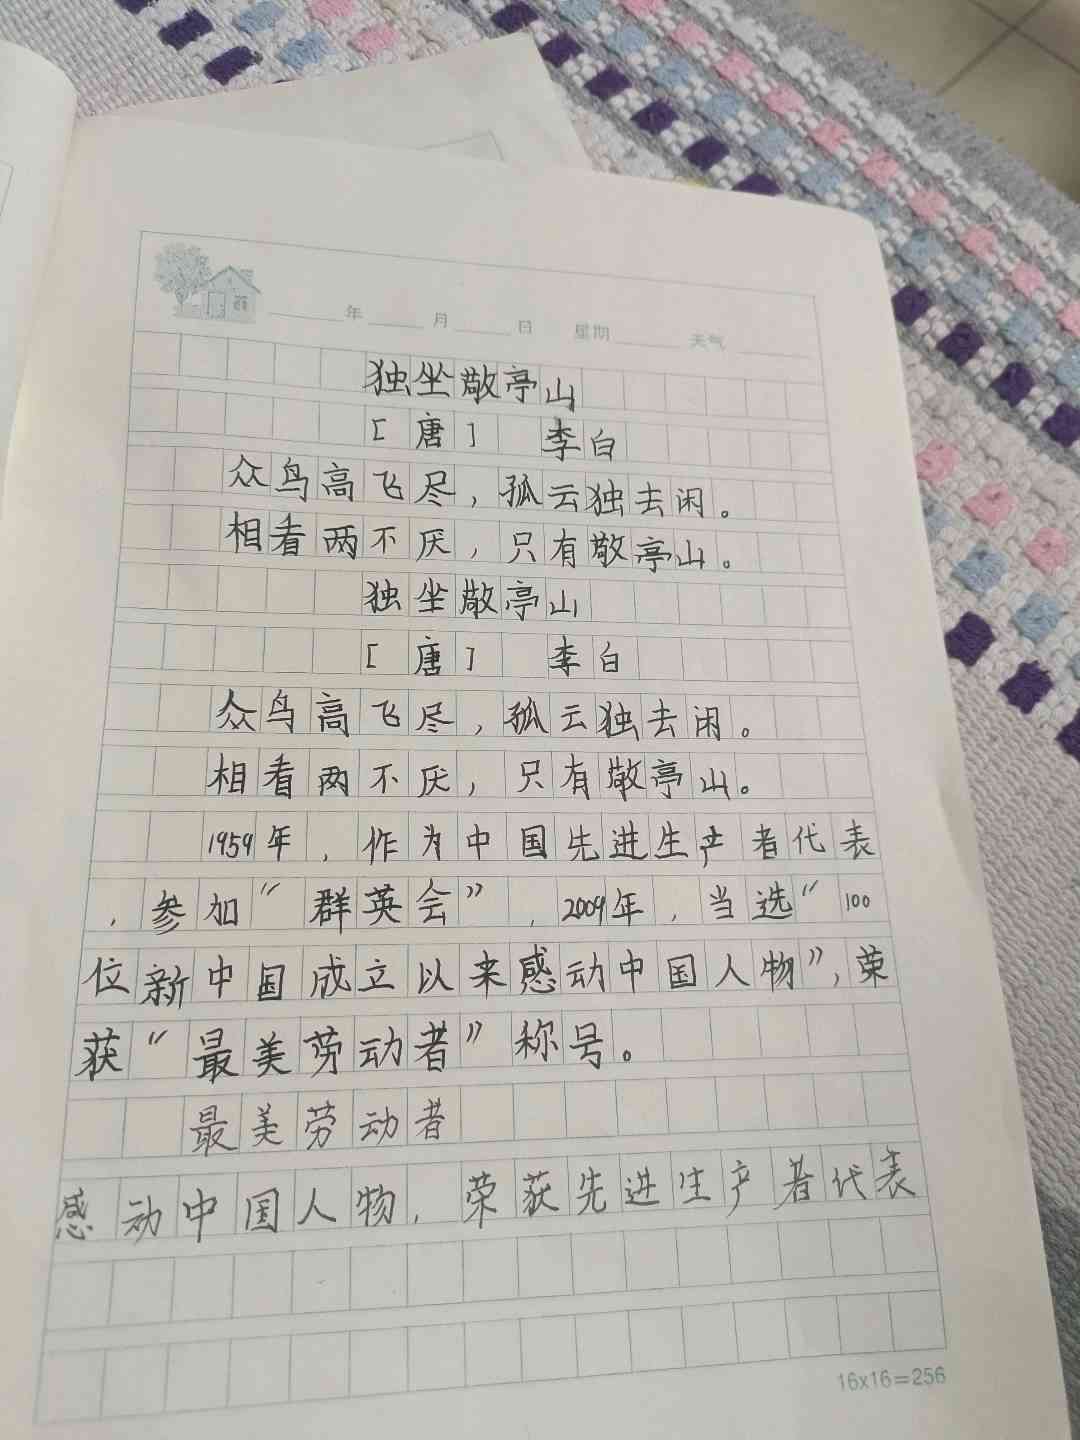 年 月 日 星期 天气
独坐敬亭山
[唐] 李白
众鸟高飞尽，孤云独去闲。
相看两不厌，只有敬亭山。
独坐敬亭山
[唐] 李白
众鸟高飞尽，孤云独去闲。
相看两不厌，只有敬亭山。
1959年，作为中国先进生产者代表
，参加“群英会”，2009年，当选“100
位新中国成立以来感动中国人物”，荣
获“最美劳动者”称号。
最美劳动者
感动中国人物，荣获先进生产者代表
16x16=256